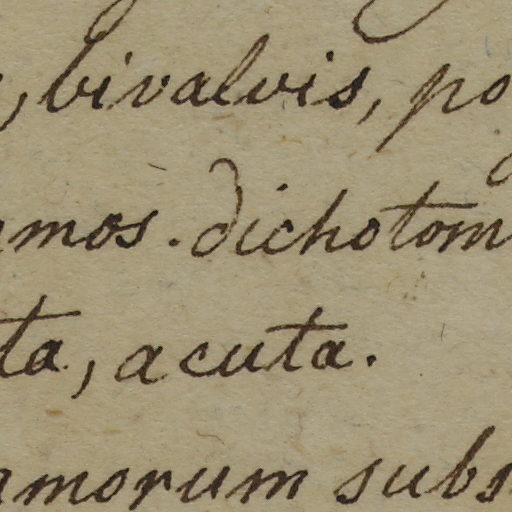 , bivalvis, po
mos. dichotom
ta, acuta.
amorum subs